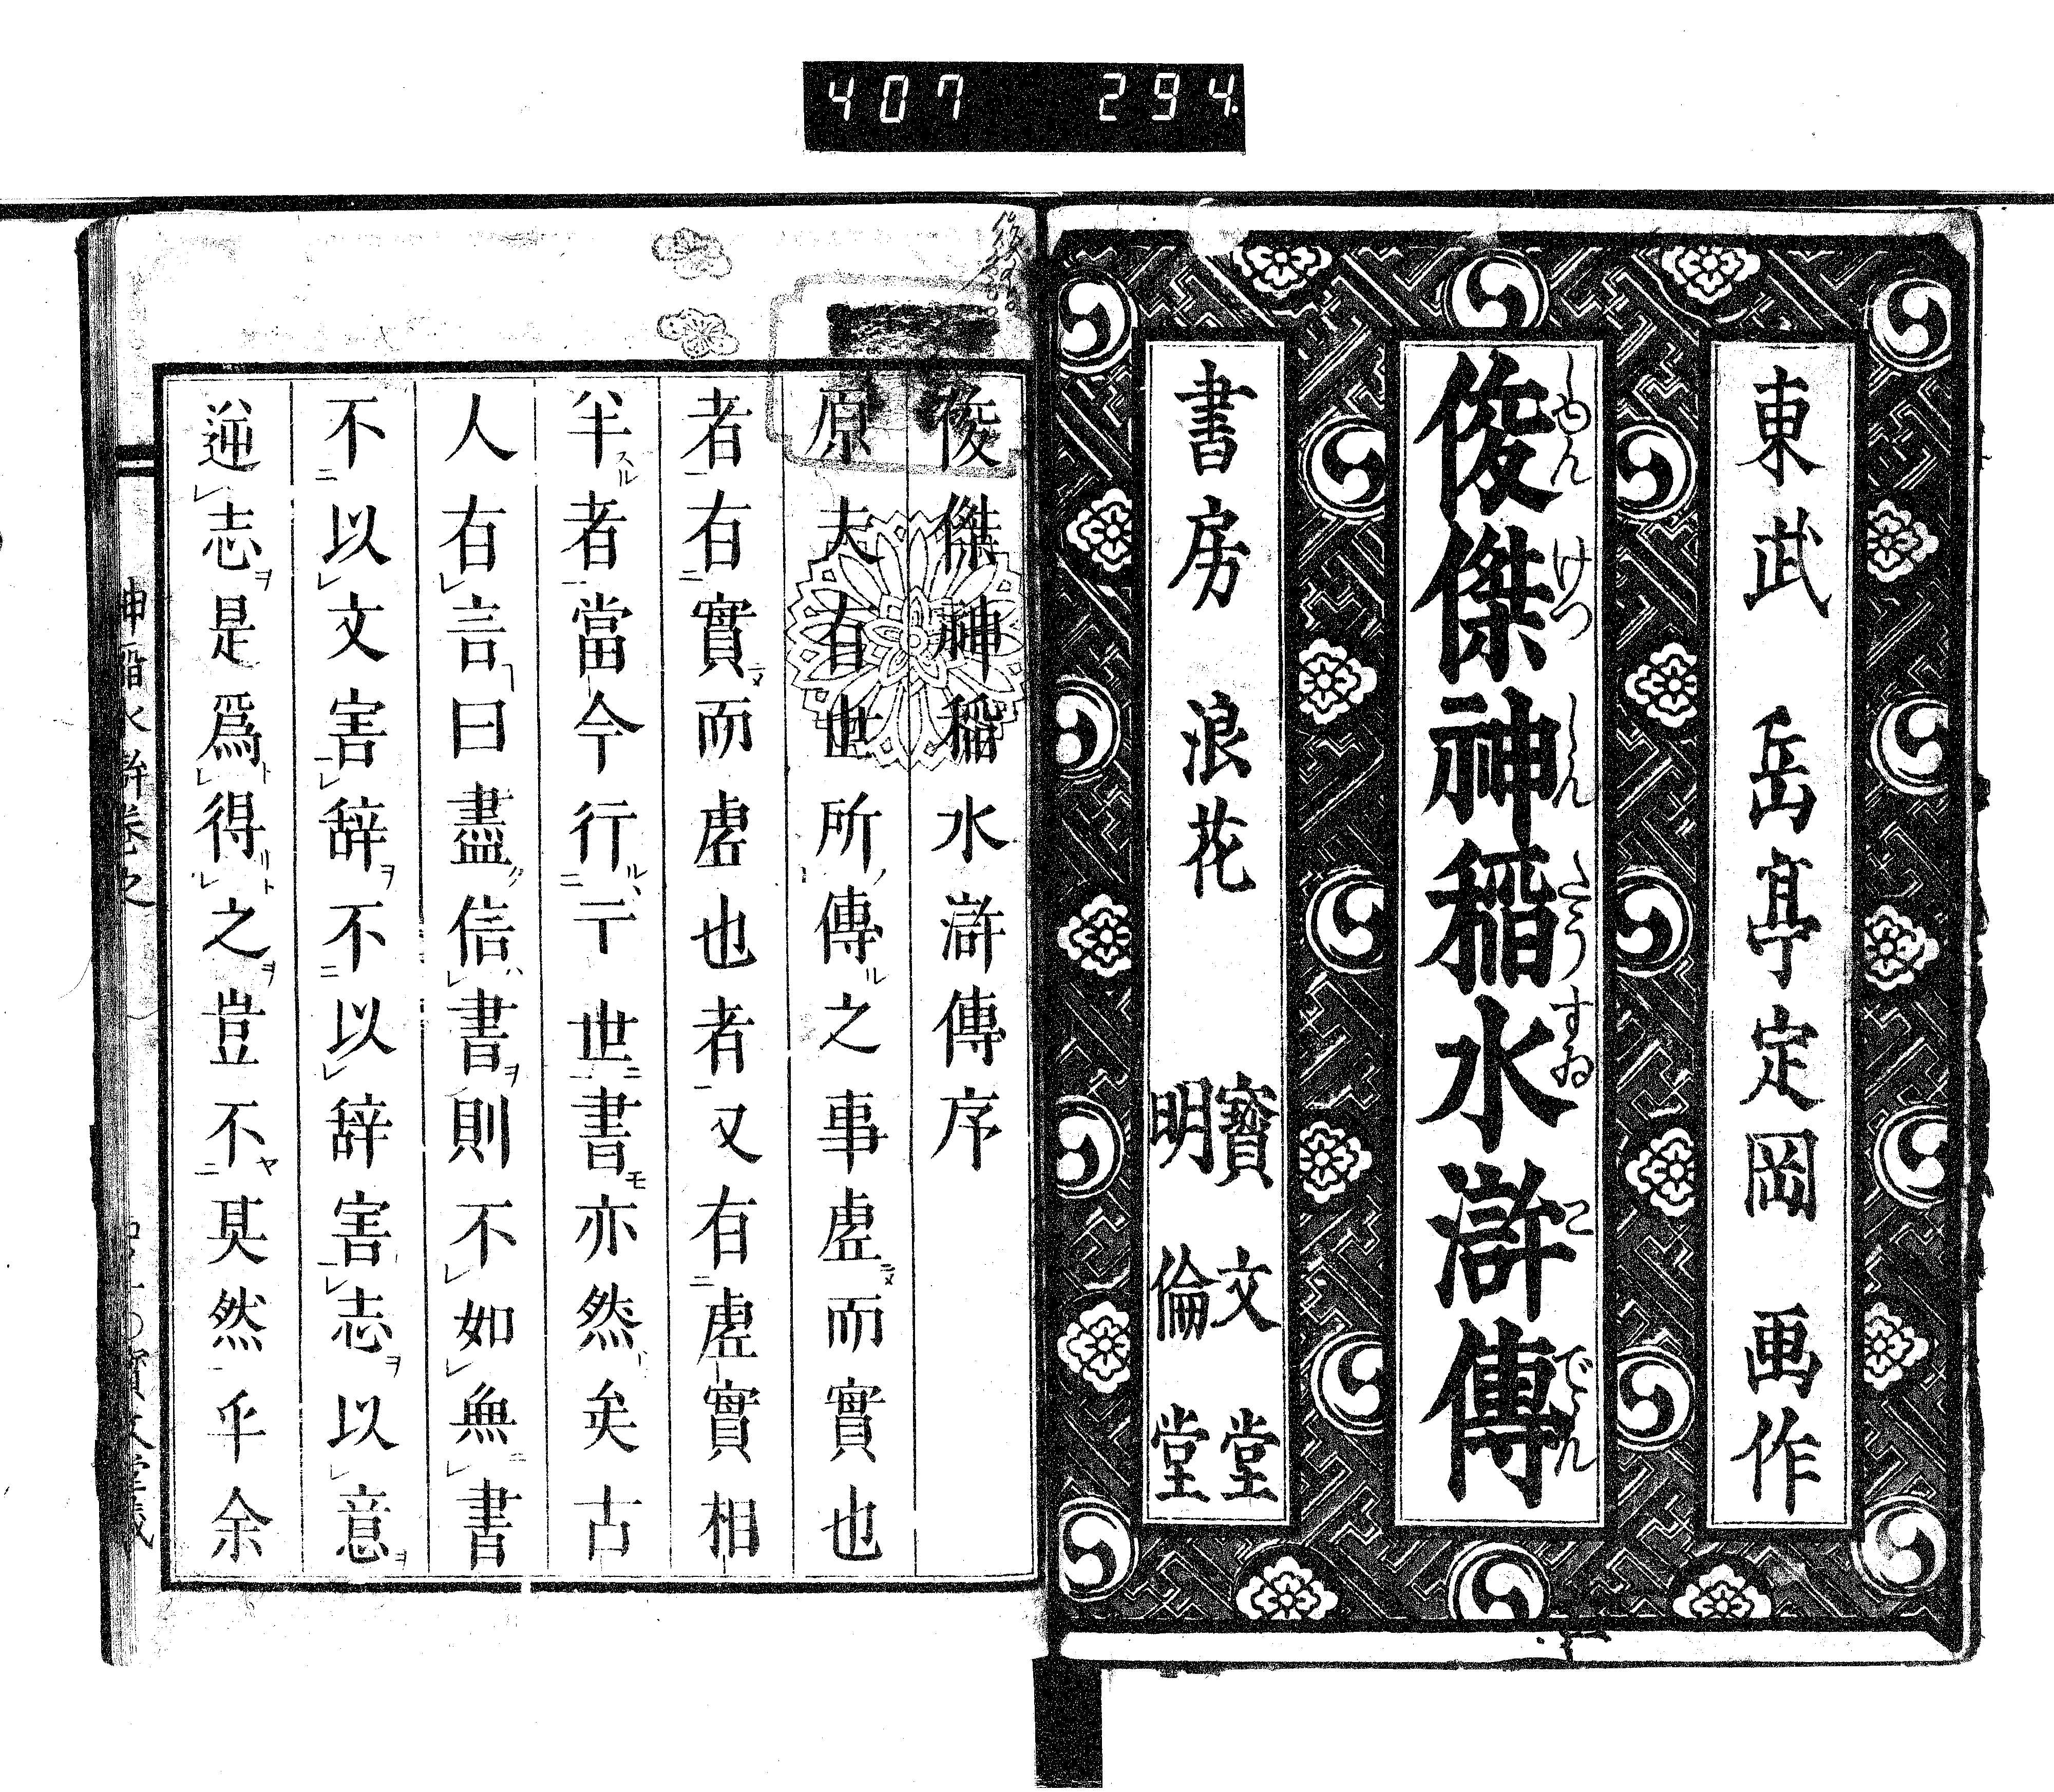 407 294
東武 岳亭定岡 画作
俊傑神稲水滸傳
しゆん けつ しん たう すゐ こ でん
書房 浪花 寳文堂
明倫堂
俊傑神稲水滸傳序
原夫有世所傳之事虚而實也
者有實而虚也者又有虚實相
半者當今行于世書亦然矣古
人有言曰盡信書則不如無書
不以文害辞不以辞害志以意
逆志是爲得之豈不其然乎余